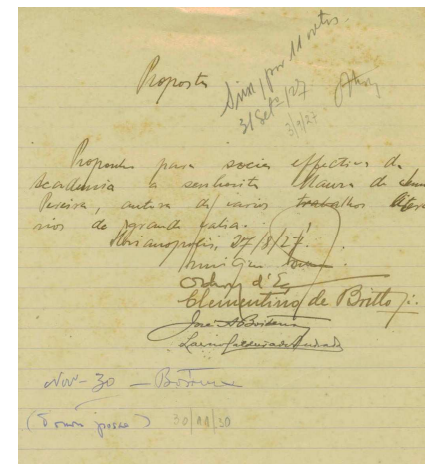 Proposta
Sim, por 11 votos.
31 Setº 1927
3/9/27
Proponho para socia effectiva da
Academia a senhorita Maura de Senna
Pereira, autora de varios trabalhos litera
rios de grande valia.
Florianopolis, 27/8/27.
Clementino de Britto
José A Boiteux
Laercio Caldeira de Andrada
Nov-30 — Boiteux
(Tomou posse) 30/11/30